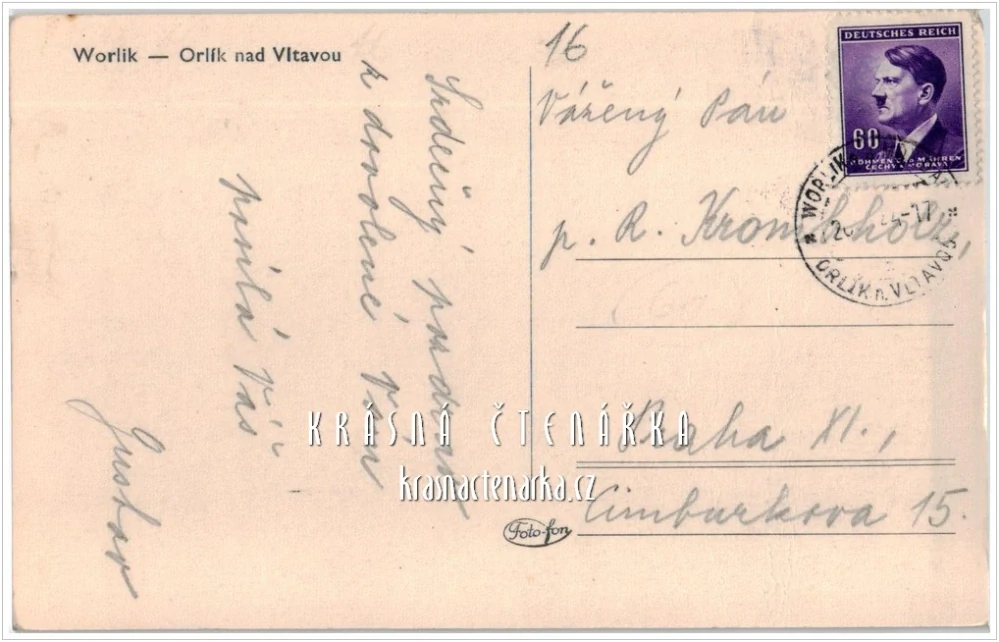 Worlik — Orlík nad Vltavou
16
DEUTSCHES REICH
60
BÖHMEN UND MÄHREN
ČECHY A MORAVA
WORLIK
ORLÍK n. VLTAVOU
Srdečný pozdrav
z dovolené Vám
posílá Váš
Gustav
Vážený Pán
p. R. Krombholz,
Praha XI.,
Cimburkova 15.
KRÁSNÁ ČTENÁŘKA
krasnactenarka.cz
Foto-fon